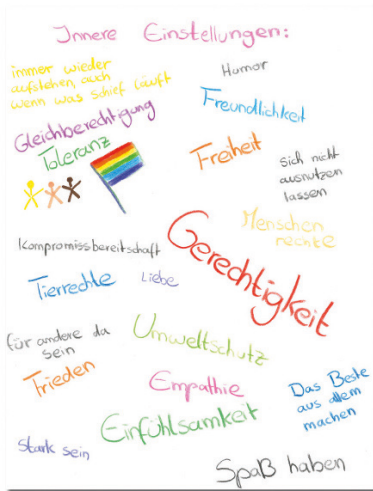 Innere Einstellungen:
immer wieder
aufstehen, auch
wenn was schief läuft
Humor
Freundlichkeit
Gleichberechtigung
Toleranz
Freiheit
sich nicht
ausnutzen
lassen
Menschen
rechte
Gerechtigkeit
Kompromissbereitschaft
Tierrechte
Liebe
für andere da
sein
Umweltschutz
Frieden
Empathie
Das Beste
aus allem
machen
Einfühlsamkeit
Stark sein
Spaß haben